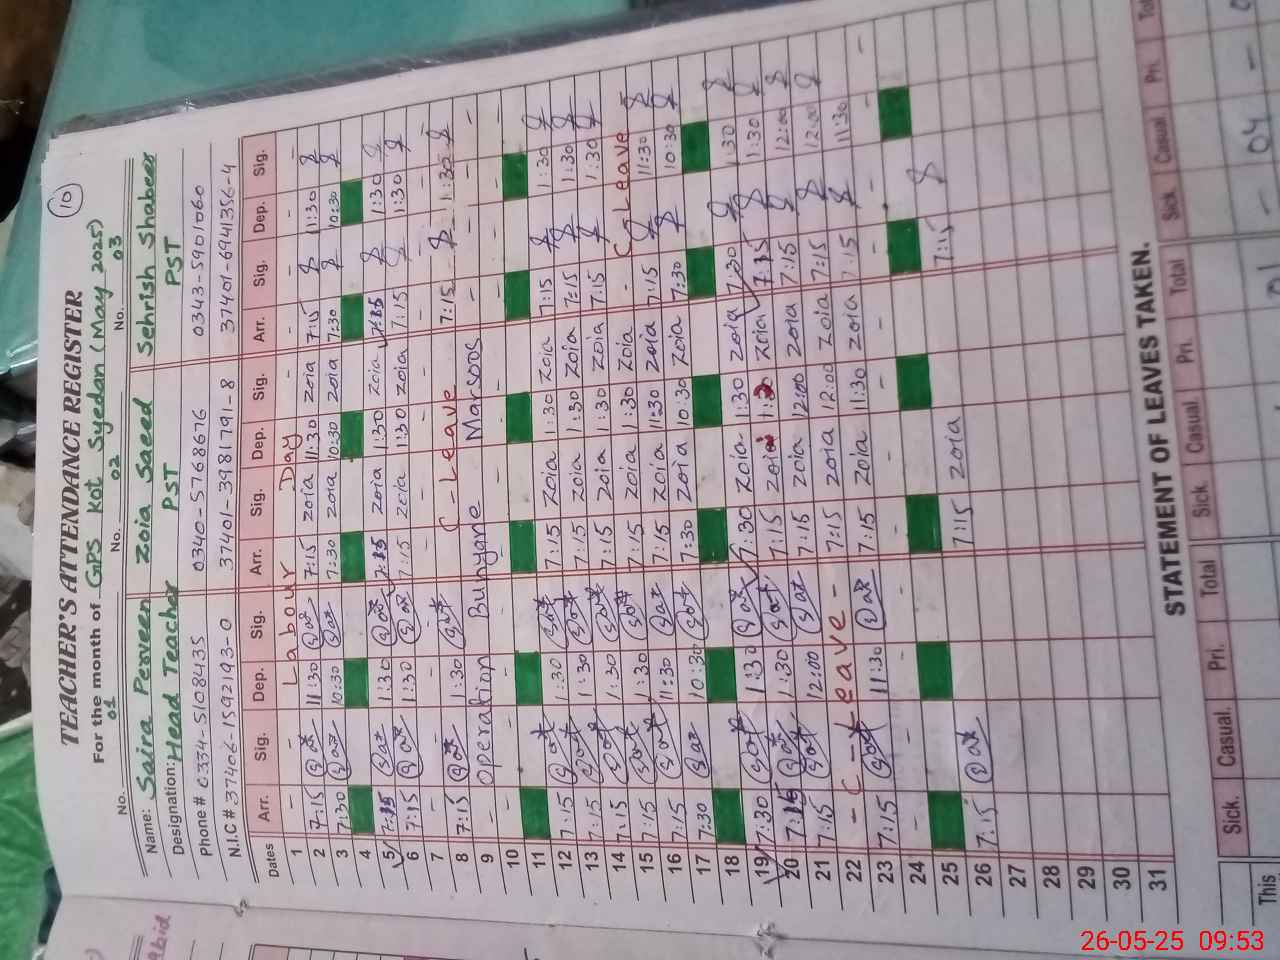 TEACHER'S ATTENDANCE REGISTER
10
For the month of GPS Kot Syedan (May 2025)
No. 01 No. 02 No. 03
Name: Saira Perveen Zoia Saeed Sehrish Shabeer
Designation: Head Teacher PST PST
Phone # 0334-5108435 0340-5768676 0343-5901060
N.I.C # 37406-1592193-0 37401-3981791-8 37401-6941356-4
Dates Arr. Sig. Dep. Sig. Arr. Sig. Dep. Sig. Arr. Sig. Dep. Sig.
1 - - Labour Day - - - - -
2 7:15 11:30 7:15 zoia 11:30 zoia 7:15 11:30
3 7:30 10:30 7:30 zoia 10:30 zoia 7:30 10:30
4
5 7:15 1:30 7:15 zoia 1:30 zoia 7:15 1:30
6 7:15 1:30 7:15 zoia 1:30 zoia 7:15 1:30
7 - - - - - - - -
8 7:15 1:30 C-Leave 7:15 1:30
9 - Operation Bunyane Marsoos - - -
10 - - - - - - - -
11
12 7:15 1:30 7:15 zoia 1:30 zoia 7:15 1:30
13 7:15 1:30 7:15 zoia 1:30 zoia 7:15 1:30
14 7:15 1:30 7:15 zoia 1:30 zoia 7:15 1:30
15 7:15 1:30 7:15 zoia 1:30 zoia - C-Leave
16 7:15 11:30 7:15 zoia 11:30 zoia 7:15 11:30
17 7:30 10:30 7:30 zoia 10:30 zoia 7:30 10:30
18
19 7:30 1:30 7:30 zoia 1:30 zoia 7:30 1:30
20 7:15 1:30 7:15 zoia 1:30 zoia 7:15 1:30
21 7:15 12:00 7:15 zoia 12:00 zoia 7:15 12:00
22 - C-Leave - 7:15 zoia 12:00 zoia 7:15 12:00
23 7:15 11:30 7:15 zoia 11:30 zoia 7:15 11:30
24 - - - - - - - -
25
26 7:15 7:15 zoia 7:15
27
28
29
30
31
STATEMENT OF LEAVES TAKEN.
Sick. Casual. Pri. Total Sick. Casual. Pri. Total Sick Casual Pri. Tot
This - 04 -
26-05-25 09:53